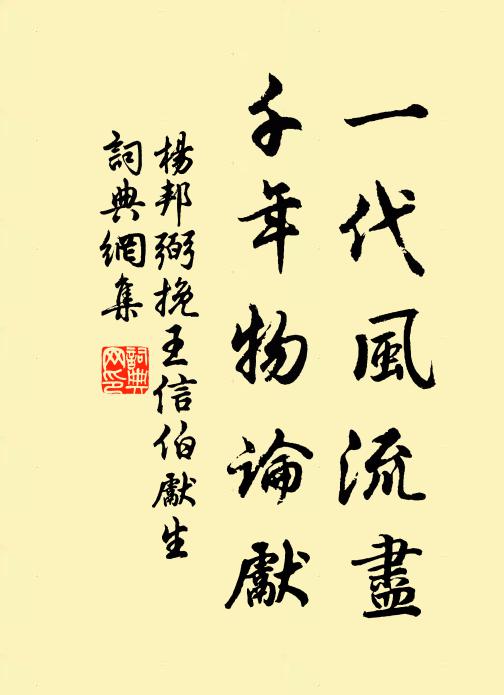 一代風流盡
千年物論獻
楊邦弼挽王信伯獻生
詞典網集
詞典网印